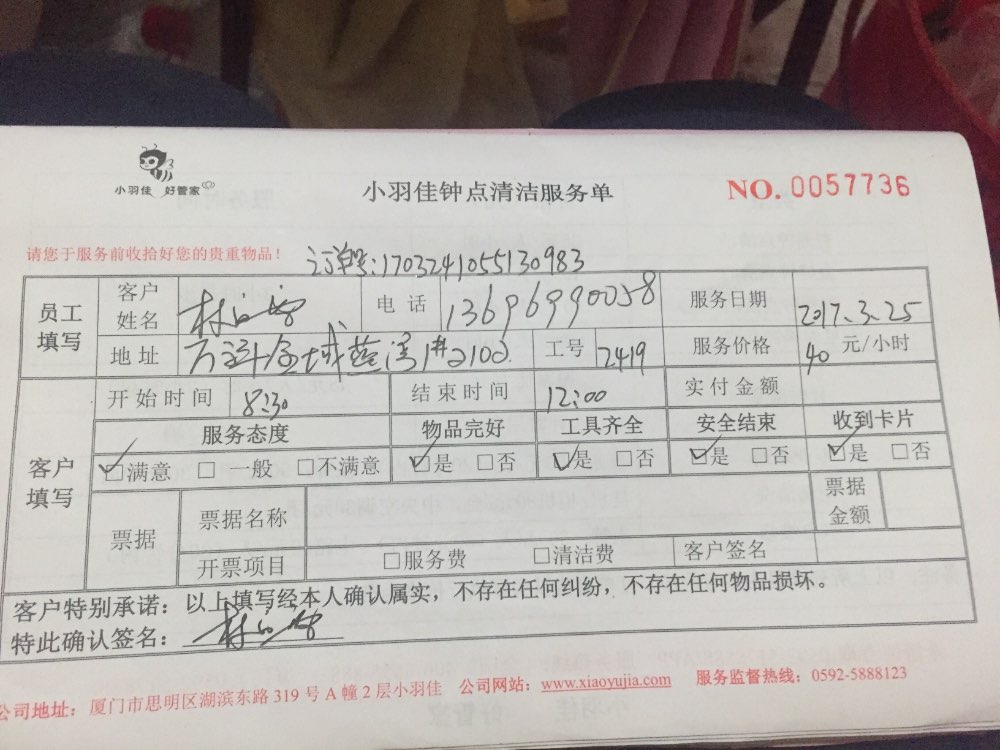 小羽佳 好管家
小羽佳钟点清洁服务单
NO. 0057736
请您于服务前收拾好您的贵重物品！
订单号:170324105513098​3
员工填写 客户姓名 林 电话 13696990058 服务日期 2017.3.25
地址 万科金域蓝湾1#2102 工号 2419 服务价格 40 元/小时
客户填写 开始时间 8:30 结束时间 12:00 实付金额
服务态度 物品完好 工具齐全 安全结束 收到卡片
☑满意 □一般 □不满意 ☑是 □否 ☑是 □否 ☑是 □否 ☑是 □否
票据 票据名称 票据金额
开票项目 □服务费 □清洁费 客户签名
客户特别承诺：以上填写经本人确认属实，不存在任何纠纷，不存在任何物品损坏。
特此确认签名：林
公司地址：厦门市思明区湖滨东路 319 号 A 幢 2 层小羽佳 公司网站：www.xiaoyujia.com 服务监督热线：0592-5888123